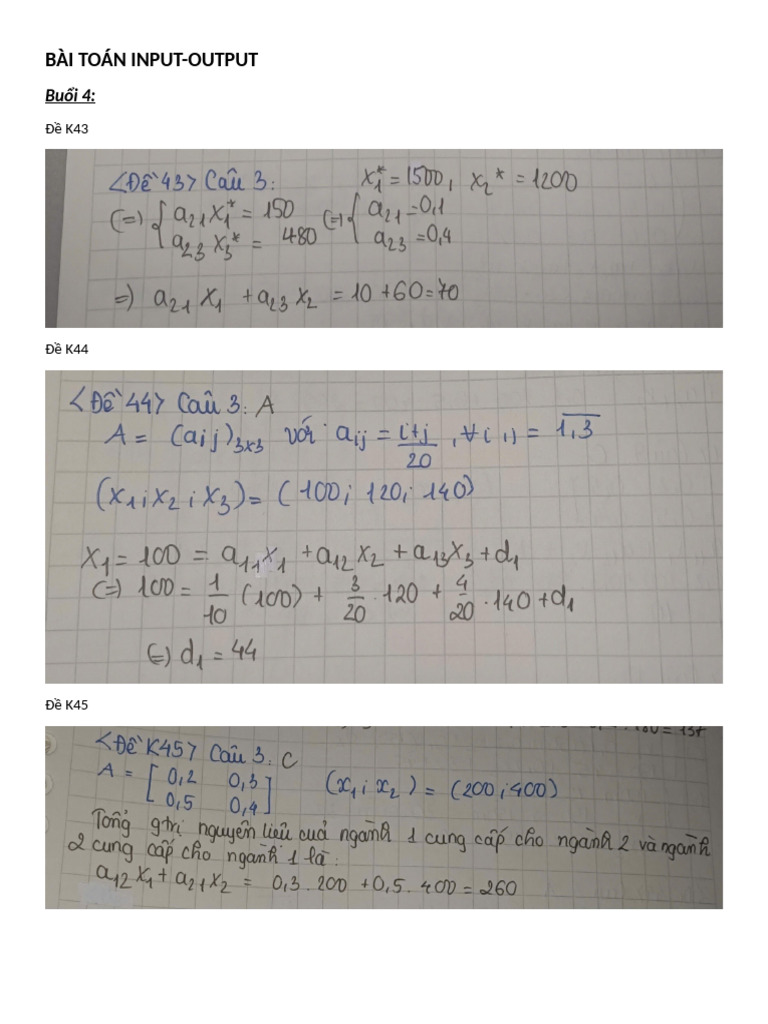 BÀI TOÁN INPUT-OUTPUT
Buổi 4:
Đề K43
<Đề 43> Câu 3: x₁* = 1500, x₂* = 1200
(=) { a₂₁x₁* = 150 (=) { a₂₁ = 0,1
a₂₃ x₃* = 480 a₂₃ = 0,4
=) a₂₁ x₁ + a₂₃ x₂ = 10 + 60 = 70
Đề K44
<Đề 44> Câu 3: A
A = (aij)₃ₓ₃ với aij = i+j/20 , ∀ i, j = 1,3
(x₁; x₂; x₃) = (100; 120; 140)
x₁ = 100 = a₁₁x₁ + a₁₂x₂ + a₁₃x₃ + d₁
(=) 100 = 1/10 (100) + 3/20 . 120 + 4/20 . 140 + d₁
(=) d₁ = 44
Đề K45
<Đề K45> Câu 3: C
A = [ 0,2 0,3 (x₁; x₂) = (200; 400)
0,5 0,4 ]
Tổng gtrị nguyên liệu của ngành 1 cung cấp cho ngành 2 và ngành
2 cung cấp cho ngành 1 là:
a₁₂x₁ + a₂₁x₂ = 0,3 . 200 + 0,5 . 400 = 260